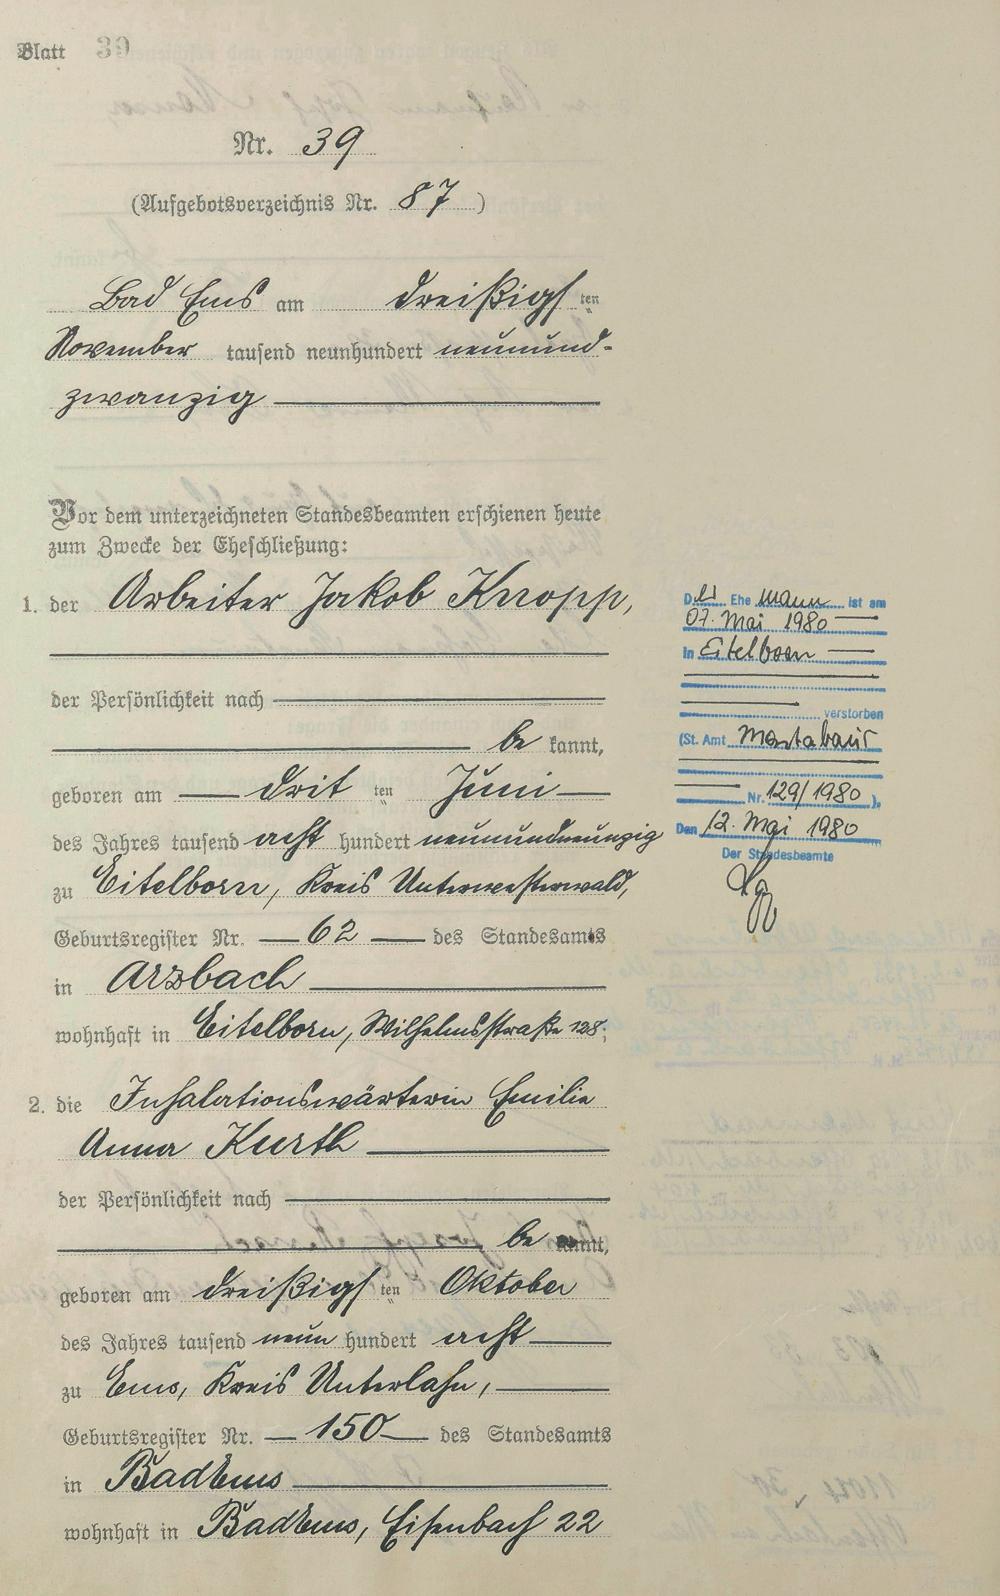 Blatt 39
Nr. 39
(Aufgebotsverzeichnis Nr. 87)
Bad Ems am dreißigsten
November tausend neunhundert neunund-
zwanzig
Vor dem unterzeichneten Standesbeamten erschienen heute
zum Zwecke der Eheschließung:
1. der Arbeiter Jakob Knopp,
der Persönlichkeit nach
bekannt,
geboren am dritten Juni
des Jahres tausend acht hundert neunundneunzig
zu Eitelborn, Kreis Unterwesterwald,
Geburtsregister Nr. 62 des Standesamts
in Arzbach
wohnhaft in Eitelborn, Wilhelmsstraße 128;
2. die Inhalationswärterin Emilie
Anna Kurth
der Persönlichkeit nach
bekannt,
geboren am dreißigsten Oktober
des Jahres tausend neun hundert acht
zu Ems, Kreis Unterlahn,
Geburtsregister Nr. 150 des Standesamts
in Bad Ems
wohnhaft in Bad Ems, Eisenbach 22
Der Ehemann ist am
07. Mai 1980
in Eitelborn
verstorben
(St. Amt Montabaur
Nr. 129/1980).
Den 12. Mai 1980
Der Standesbeamte